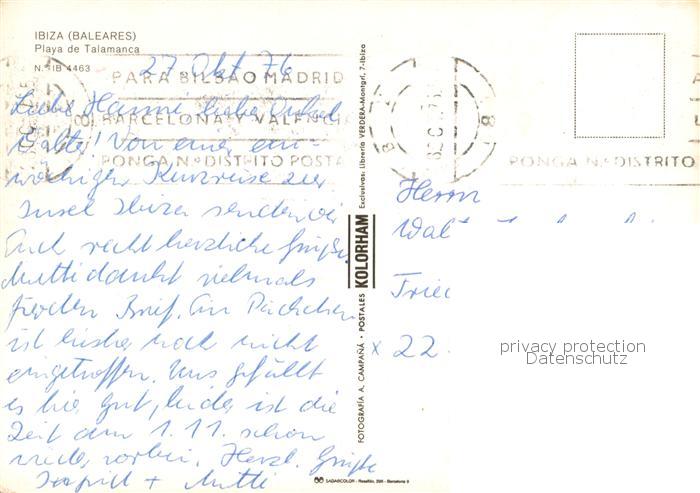 IBIZA (BALEARES)
Playa de Talamanca
N.º IB 4463
27 Okt 76
PARA BILBAO MADRID
BARCELONA Y VALENCIA
PONGA N.º DISTRITO POSTA
Liebe Hanni, lieber
Walter! Von einer ein-
wöchigen Kurzreise zur
Insel Ibiza senden wir
Euch recht herzliche Grüße.
Mutti dankt vielmals
für den Brief. Ein Päckchen
ist bisher noch nicht
eingetroffen. Uns gefällt
es hier gut, leider ist die
Zeit am 1.11. schon
wieder vorbei. Herzl. Grüße
+ Mutti
FOTOGRAFIA A. CAMPAÑA · POSTALES KOLORHAM Exclusivas: Librería VERDERA-Montgrí, 7-Ibiza
SADAGCOLOR - Rosellón, 298 - Barcelona 9
PONGA N.º DISTRITO
Herrn
Wal
Trie
x 22
privacy protection
Datenschutz